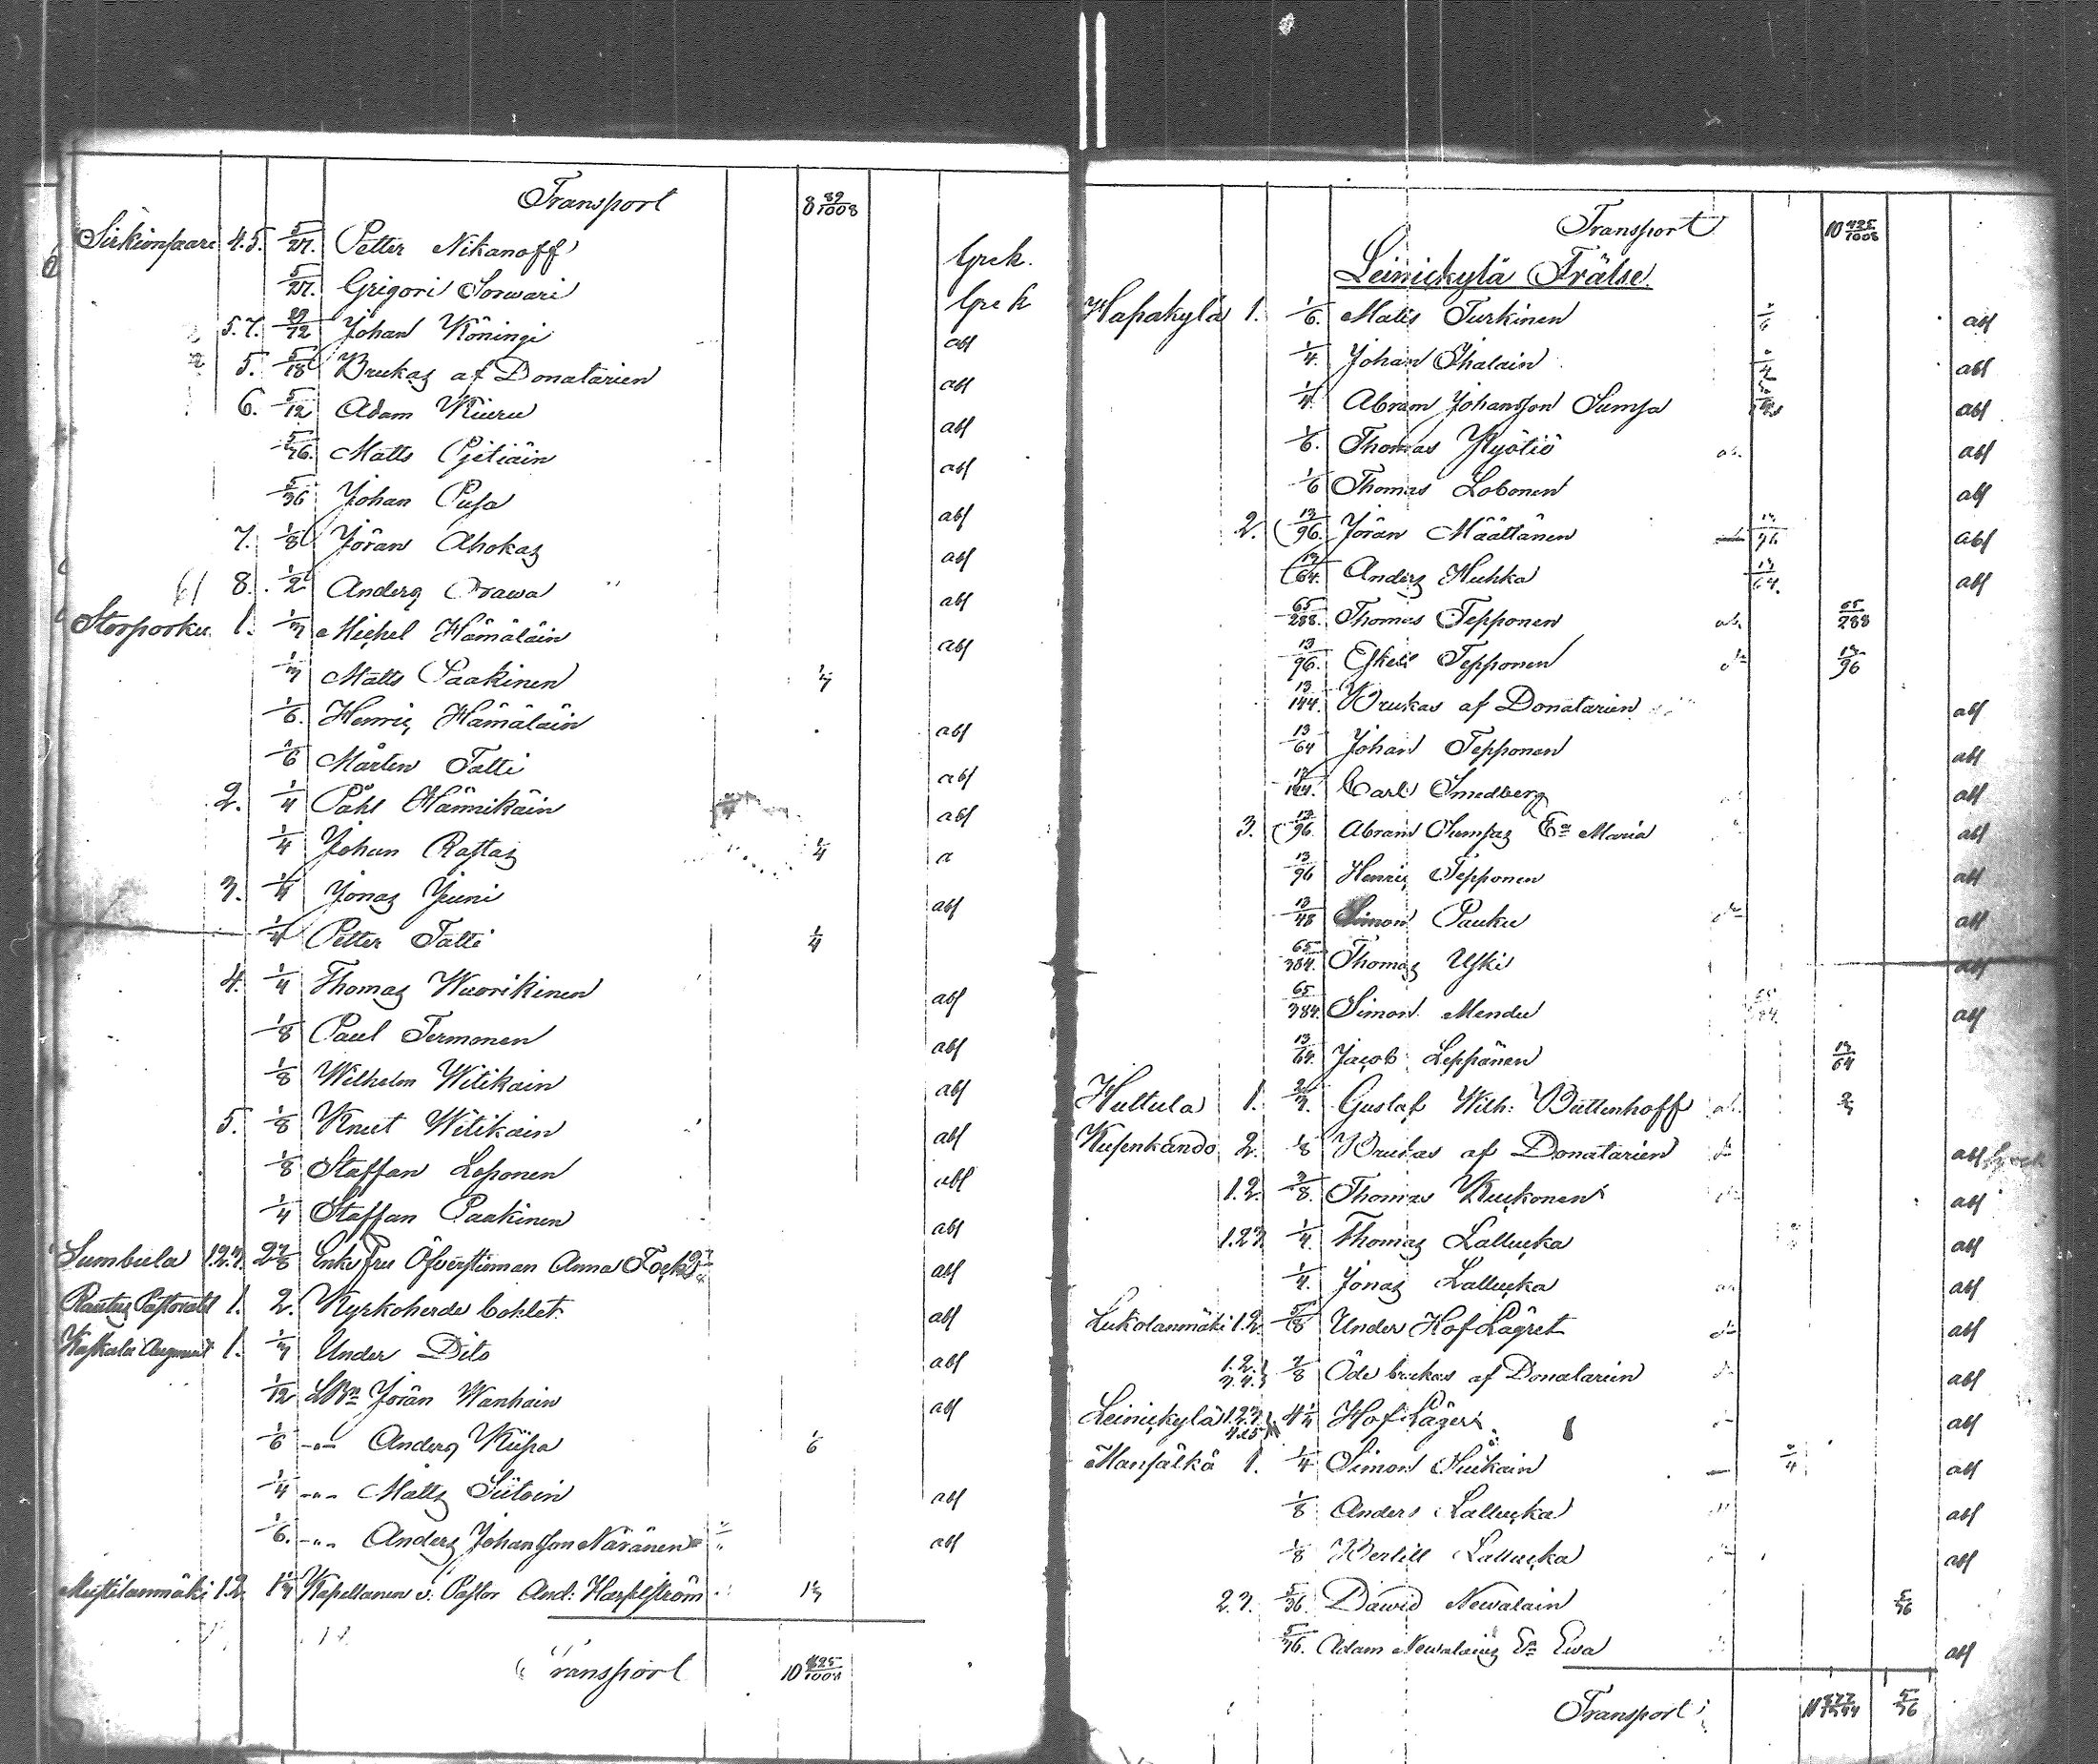 Transport 8 89/1008
Sirkiönsaari 4.5. 5/27. Petter Nikanoff Grek.
5/27. Grigori Sorwari Grek
5.7. 29/72 Johan Köningi abs
5. 5/18 Brukas af Donatarien abs
6. 5/12 Adam Kiuru abs
5/36. Matts Pjetiäin abs
5/36 Johan Pusa abs
7. 1/8 Jöran Ahokas abs
8. 1/2 Anders Orawa abs
Storporku 1. 1/3 Michel Hämäläin abs
1/3 Matts Paakinen 1/3
1/6. Henric Hämäläin abs
1/6 Mårten Tatti abs
2. 1/4 Påhl Hännikäin abs
1/4 Johan Rastas 1/4 a
3. 1/4 Jonas Juni abs
1/4 Petter Tatti 1/4
4. 1/4 Thomas Wuorikinen abs
1/8 Paul Termonen abs
1/8 Wilhelm Witikain abs
5. 1/8 Knut Witikain abs
1/8 Staffan Loponen abs
1/4 Staffan Paakinen abs
Sumbula 1.2.3. Enkefru Öfverstinnan Anna Fock abs
Rautus Pastorat 1. 2. Kyrkoherde Cohlet abs
Waskala Augment 1. 1/3 Under Dito abs
1/12 LBn Jöran Wanhain abs
1/6 -"- Anders Kiisa 1/6
1/4 -"- Matts Siitoin abs
1/6. -"- Anders Johansson Näränen abs
Mustilanmäki 1.2. 1 1/3 Kapellanen v: Pastor And: Hasselström 1 1/3
Transport 10 425/1008
Transport 10 425/1008
Leinickylä Frälse
Hapakylä 1. 1/6. Matts Turkinen abs
1/4. Johan Ihalain abs
1/4. Abram Johansson Sumsa abs
1/6. Thomas Kyötiö abs
1/6 Thomas Lobonen abs
2. 13/96. Jöran Määttänen 13/96 abs
13/64. Anders Huhka 13/64. abs
65/288. Thomas Tepponen 65/288
13/96. Eskel Tepponen 13/96
13/144. Brukas af Donatarien abs
13/64 Johan Tepponen abs
13/144. Carl Smedberg abs
3. 13/96. Abram Sumsas Ea Maria abs
13/96 Henric Tepponen abs
13/48 Simon Pauku abs
65/384. Thomas Uski abs
65/384. Simon Mendu abs
13/64. Jacob Leppänen 13/64
Huttula 1. 2/3. Gustaf Wilh: Büttenhoff 2/3
Kusenkando 2. 1/8 Brukas af Donatarien abs
1.2. 3/8. Thomas Kuckonen abs
1.2.3. 1/4. Thomas Lallucka abs
1/4. Jonas Lallucka abs
Lukolanmäki 1.2. 5/8 Under Hof Lägret abs
1.2. 3.4. 3/8 Öde brukas af Donatarien abs
Leinickylä 1.2.3. 4.5. Hof Läger abs
Mansälkä 1. 1/4 Simon Suikain abs
1/8 Anders Lallucka abs
1/8 Bertill Lallucka abs
2.3. 5/36. Dawid Newalain 5/36
5/36. Adam Newalains Ea Ewa abs
Transport 5/36